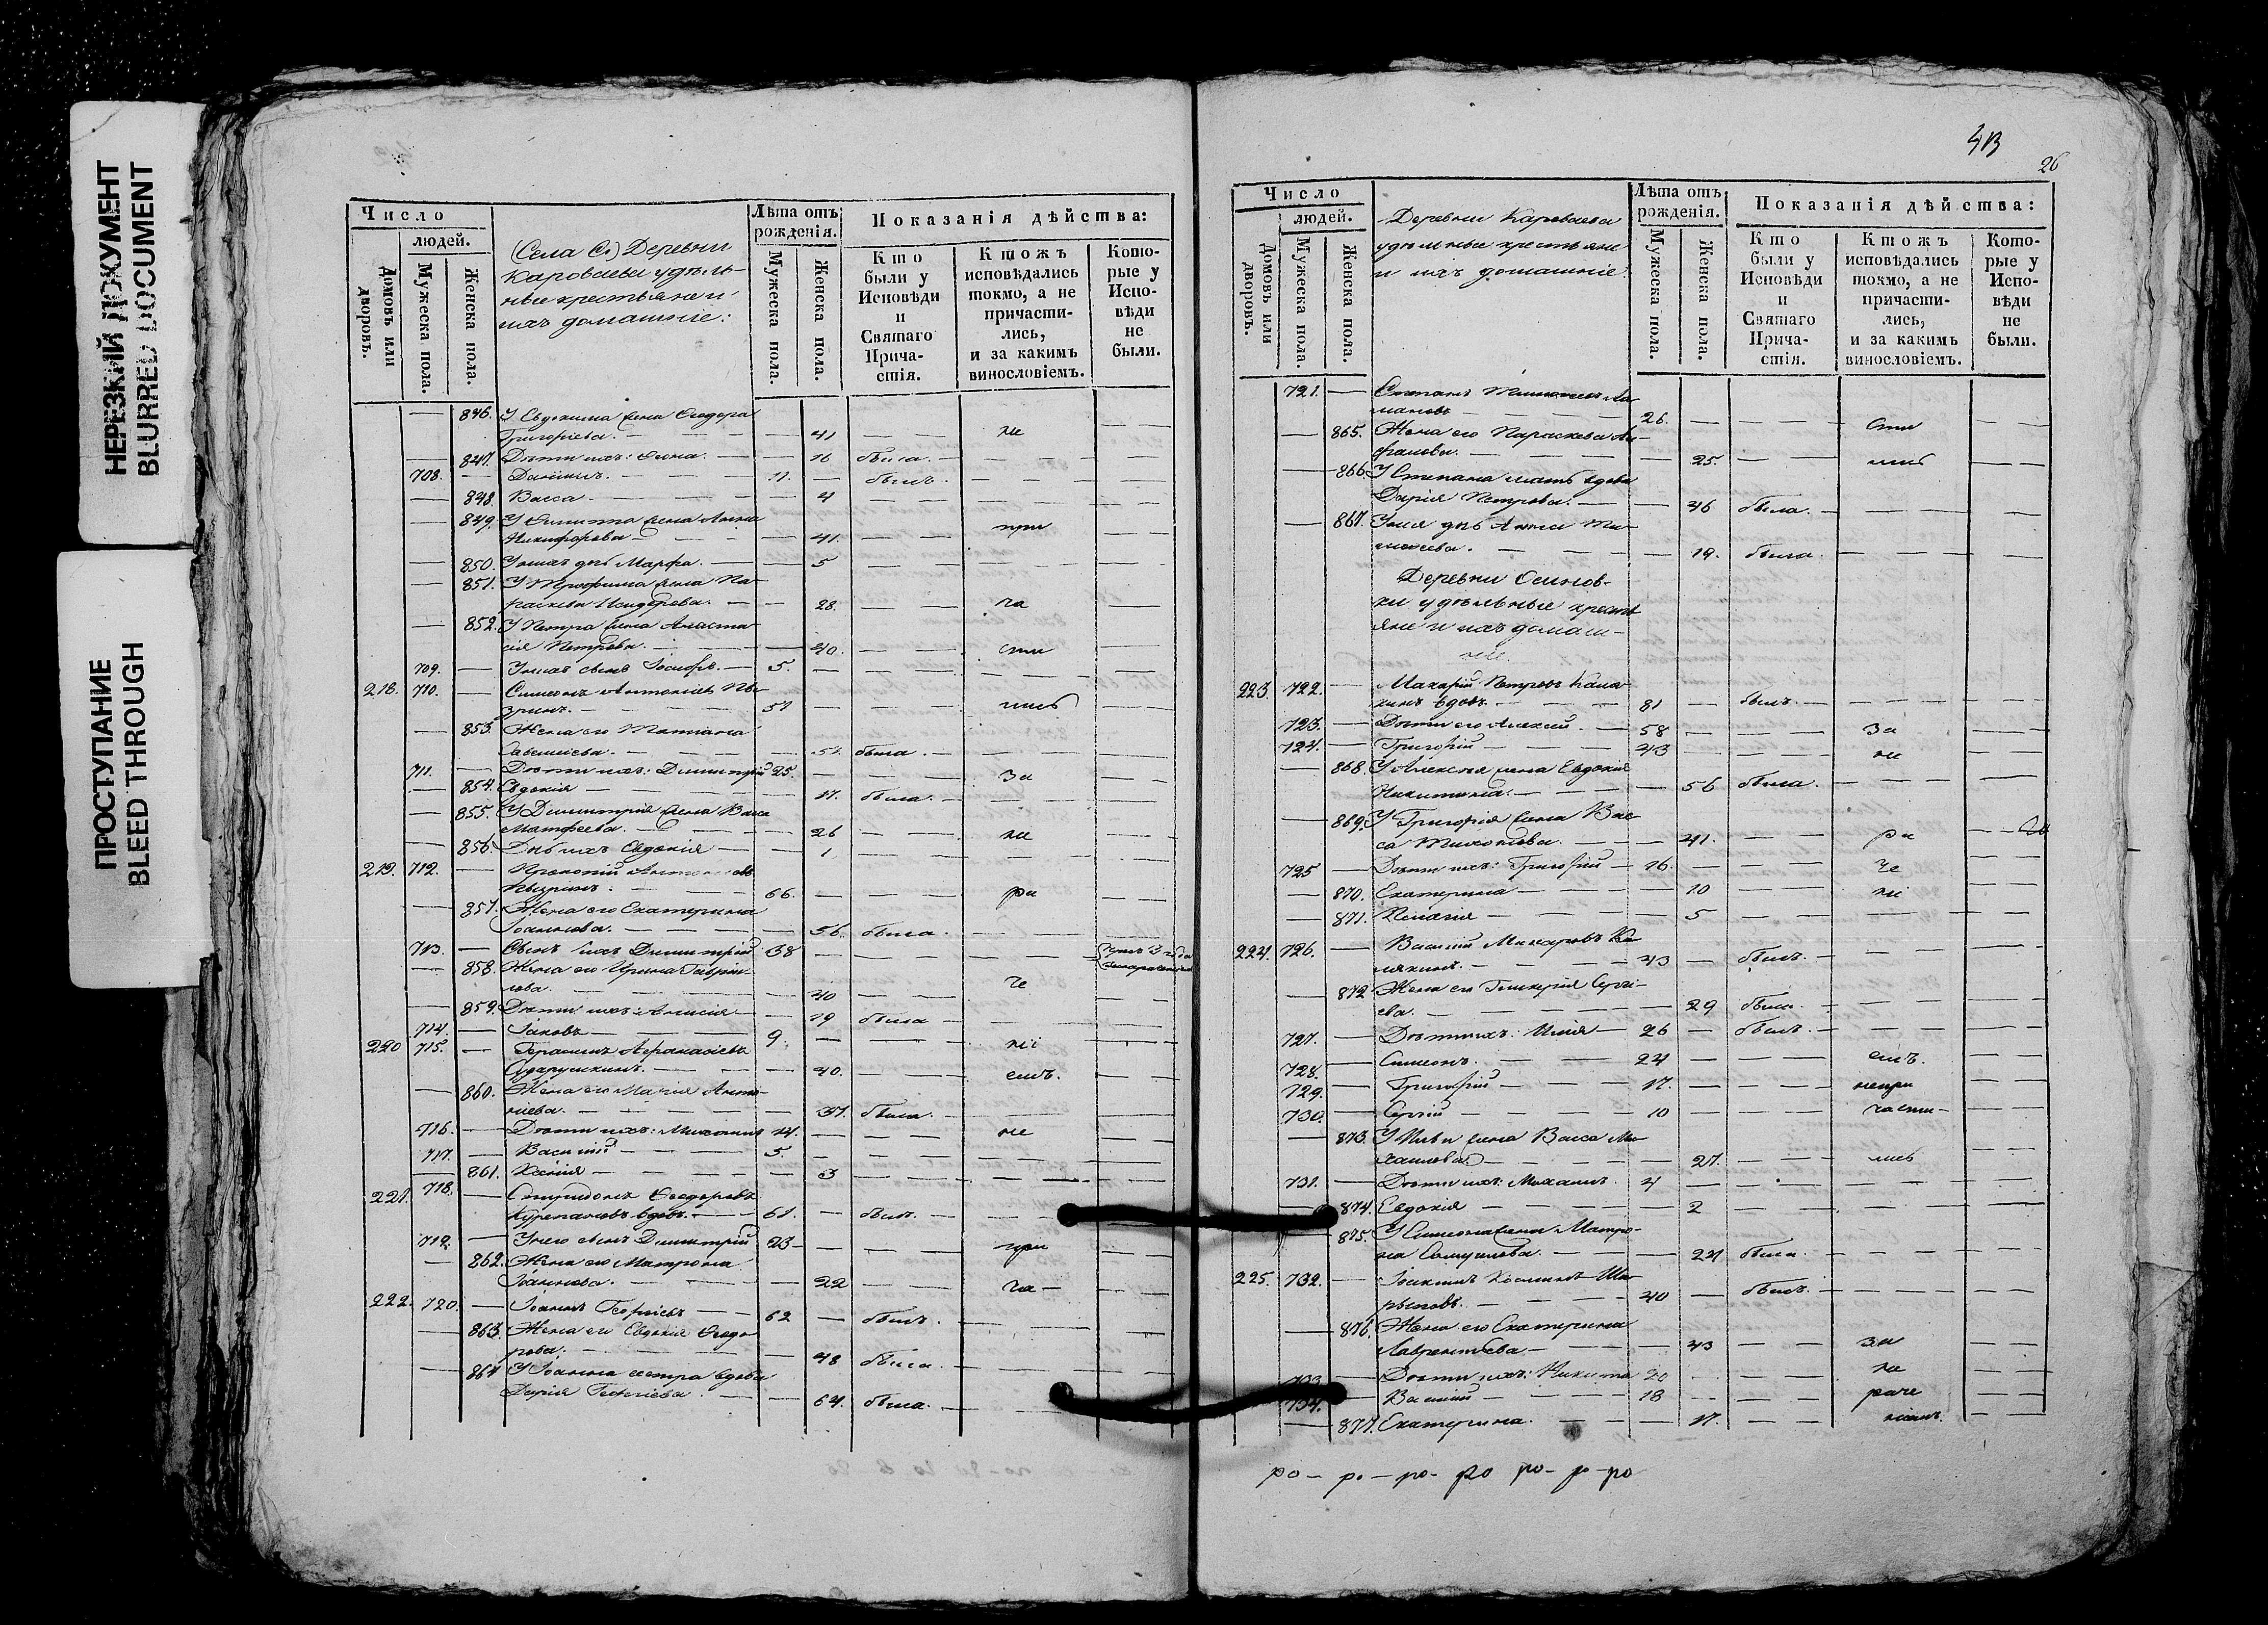 НЕРЕЗКИЙ ДОКУМЕНТ
BLURRED DOCUMENT
ПРОСТУПАНИЕ
BLEED THROUGH
Число
людей.
Домовъ или дворовъ.
Мужеска пола.
Женска пола.
Деревни
Короваевы удѣль-
ные крестьяне и
ихъ домашніе:
Лѣта отъ рожденія.
Мужеска пола.
Женска пола.
Показанія дѣйства:
Кто были у Исповѣди и Святаго Прича-стія.
Ктожъ исповѣдались токмо, а не причасти-лись, и за какимъ винословіемъ.
Кото-рые у Испо-вѣди не были.
— 846. У Евдокима жена Ѳеодора
Григоріева. — — 41 — — не
— 847. Дѣти ихъ: — 16 была. —
708. — Даніилъ. — 11. — былъ. —
— 848. Васса — 4
— 849. У Филиппа жена Анна
Никифорова — 41. — — при
— 850. У нихъ дчь Марфа. — 5
— 851. У Трофима жена Па-
раскева Исидорова. — 28. — ча
— 852. У Петра жена Анаста-
сія Петрова. — 40. — сти
709. — У нихъ сынъ Іосифъ. — 5.
218. 710. — Симеонъ Антоніевъ Пы-
зринъ. — 51 — лись
— 853. Жена его Татіана
Савеліева. — 51. была.
711. — Дѣти ихъ: Димитрій 25. — За
— 854. Евдокія — 11. была. —
— 855. У Димитрія жена Васса
Матѳеева. — 26 — не
— 856. Дчь ихъ Евдокія — 1
219. 712. — Прокопій
Пызринъ. — 66. — ра
— 857. Жена его Екатерина
Іоаннова. — 56. была.
713. — Сынъ ихъ Димитрій 38 —
— 858. Жена его Ирина Гаврі-
лова. — 40 — че
— 859. Дѣти ихъ: Анисія — 19 была —
714. — Іаковъ — 9. — ні
220 715. — Герасимъ Аѳанасіевъ
Сударушкинъ. — 40. — емъ.
— 860. Жена его Марія Анто-
ніева. — 37. была.
716. — Дѣти ихъ: Михаилъ 14. — не
717. — Василій — 5.
— 861. Ксенія — 3
221. 718. — Спиридонъ Ѳеодоровъ
Курепановъ вдовъ. — 61. — былъ.
719. — У него сынъ Димитрій 23 — при
— 862. Жена его Матрона
Іоаннова. — 22 — ча —
222. 720. — Іоаннъ Георгіевъ — 62 — былъ.
— 863. Жена его Евдокія Ѳеодо-
рова. — 48 была.
— 864 У Іоанна сестра вдова
Дарія Георгіева. — 64. была. —
43
26
Число
людей.
Домовъ или дворовъ.
Мужеска пола.
Женска пола.
Деревни Короваева
удѣльные крестьяне
и ихъ домашніе:
Лѣта отъ рожденія.
Мужеска пола.
Женска пола.
Показанія дѣйства:
Кто были у Исповѣди и Святаго Прича-стія.
Ктожъ исповѣдались токмо, а не причасти-лись, и за какимъ винословіемъ.
Кото-рые у Испо-вѣди не были.
721. — Степанъ
26. — Сти
— 865. Жена его Параскева
25. — лись
— 866. У Степана мать вдова
Дарія Петрова. — 46 была.
— 867. У нея дчь Анна Ти-
моѳеева. — 19. была.
Деревни Осинов-
ки удѣльные кресть
яне и ихъ домаш-
ніе.
223. 722. — Макарій Петровъ Каля-
кинъ вдовъ. — 81 — былъ.
723. — Дѣти его Алексій. — 58 — За
724. — Григорій — 43 — не
— 868 У Алексія жена Евдокія
Никитина. — 56 была.
— 869. У Григорія жена Вас-
са Тихонова. — 41. — ра
725 — Дѣти ихъ: Григорій — 16. — че
— 870. Екатерина — 10 — ні
— 871. Пелагія — 5
224. 726. — Василій Макаровъ Ка-
лякинъ. — 43 — былъ.
— 872 Жена его Гликерія Сергі-
ева. — 29 была.
727. — Дѣти ихъ: Илія — 26 — былъ.
728. — Симеонъ. — 24 — емъ.
729. — Григорій — 17. — непри
730. — Сергій — 10 — части-
— 873. У Иліи жена Васса Ми-
хаилова. — 27. — лись
731. — Дѣти ихъ: Михаилъ. 4
— 874. Евдокія — 2
— 875. У Симеона жена Матро-
на Самуилова. — 24 была.
225. 732. — Іоакимъ Косминъ Ша-
рыповъ. — 40 — былъ.
— 876. Жена его Екатерина
Лаврентіева — 43 — за
733 — Дѣти ихъ: Никита 20 — не
734. — Василій — 18 — раче
— 877. Екатерина. — 17. — ніемъ.
ро — ро — ро — ро ро — ро — ро